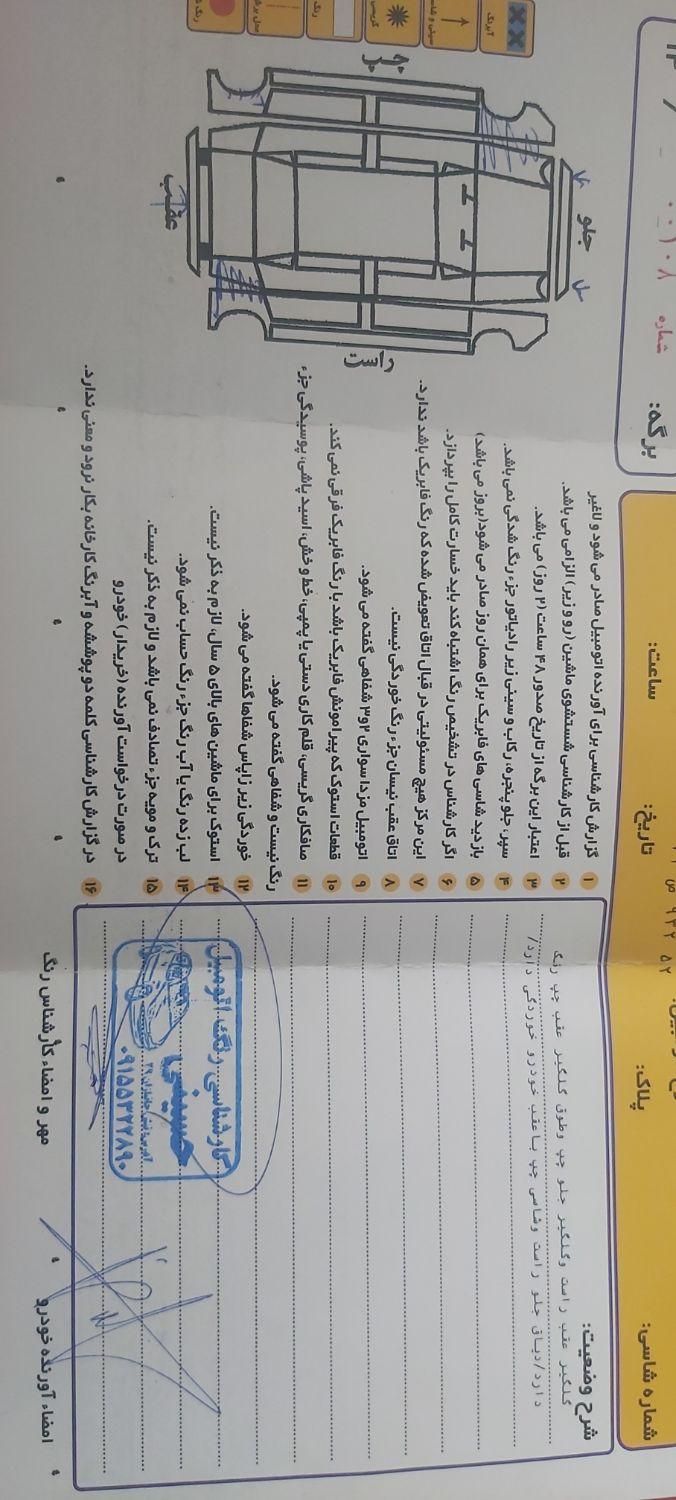 برگه:
شماره
ساعت:
تاریخ:
پلاک:
شماره شاسی:
آبرنگ
رنگ
جلو
چپ
راست
عقب
۱ گزارش کارشناسی برای آورنده اتومبیل صادر می شود و لاغیر
۲ قبل از کارشناسی شستشوی ماشین (رو و زیر) الزامی می باشد.
۳ اعتبار این برگه از تاریخ صدور ۴۸ ساعت (۲ روز) می باشد.
۴ سپر، جلو پنجره، رکاب و سینی زیر رادیاتور جزء رنگ شدگی نمی باشد.
۵ بازدید شاسی های فابریک برای همان روز صادر می شود(بروز می باشد)
۶ اگر کارشناس در تشخیص رنگ اشتباه کند باید خسارت کامل را بپردازد.
۷ این مرکز هیچ مسئولیتی در قبال اتاق تعویض شده که رنگ فابریک باشد ندارد.
۸ اتاق عقب نیسان جزء رنگ خوردگی نیست.
۹ اتومبیل مزدا سواری ۲و۳ شفاهی گفته می شود.
۱۰ قطعات استوک که پیرامونش فابریک باشد با رنگ فابریک فرقی نمی کند.
۱۱ صافکاری گریسی، قلم کاری دستی یا پمپی، خط و خش، اسید پاشی، پوسیدگی جزء
رنگ نیست و شفاهی گفته می شود.
۱۲ خوردگی زیر زاپاس شفاها گفته می شود.
۱۳ استوک برای ماشین های بالای ۵ سال، لازم به ذکر نیست.
۱۴ لب زده رنگ یا آب رنگ جزء رنگ حساب نمی شود.
۱۵ ترک و مویه جزء تصادف نمی باشد و لازم به ذکر نیست.
در صورت درخواست آورنده (خریدار) خودرو
۱۶ در گزارش کارشناسی کلمه دو پوششه و آبرنگ کارخانه بکار نرود و معنی ندارد.
شرح وضعیت:
گلگیر عقب راست وگلگیر جلو چپ وطوق گلگیر عقب چپ رنگ
دارد/دیاق جلو راست وشاسی چپ باعقب خودرو خوردگی دارد/
کارشناسی رنگ اتومبیل
حسینی
۰۹۱۵۵۳۲۷۸۹۰
مهر و امضاء کارشناس رنگ
امضاء آورنده خودرو